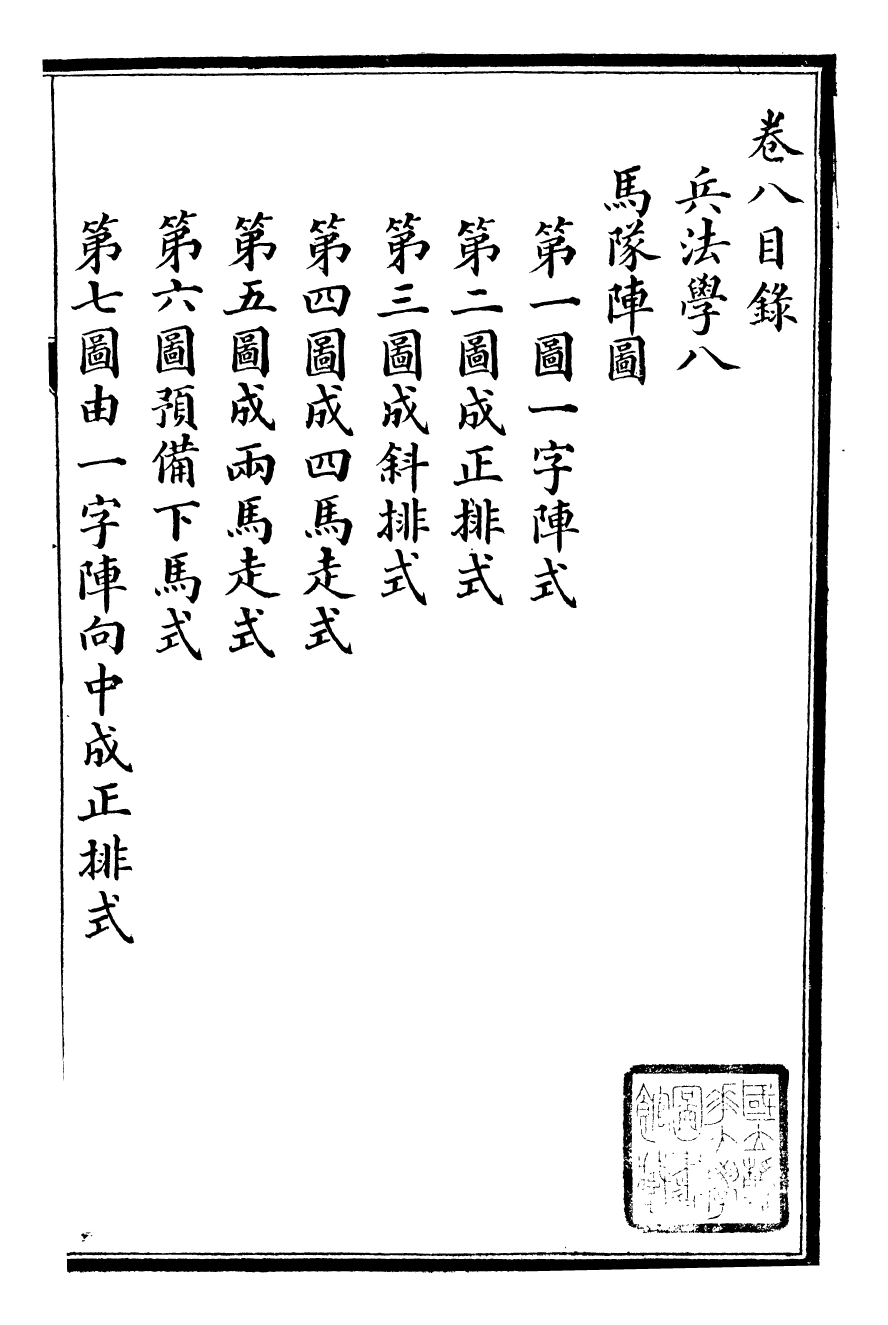 卷八目錄
兵法學八
馬隊陣圖
第一圖一字陣式
第二圖成正排式
第三圖成斜排式
第四圖成四馬走式
第五圖成兩馬走式
第六圖預備下馬式
第七圖由一字陣向中成正排式
國立清
華大學
圖書
館藏